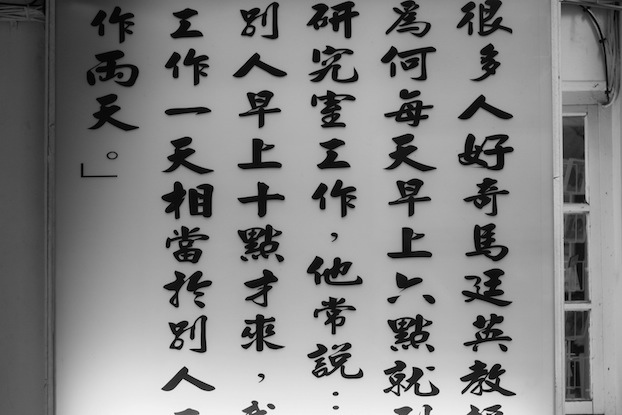 很多人好奇馬廷英教授
為何每天早上六點就到
研究室工作，他常說：
別人早上十點才來，我
工作一天相當於別人工
作兩天。」